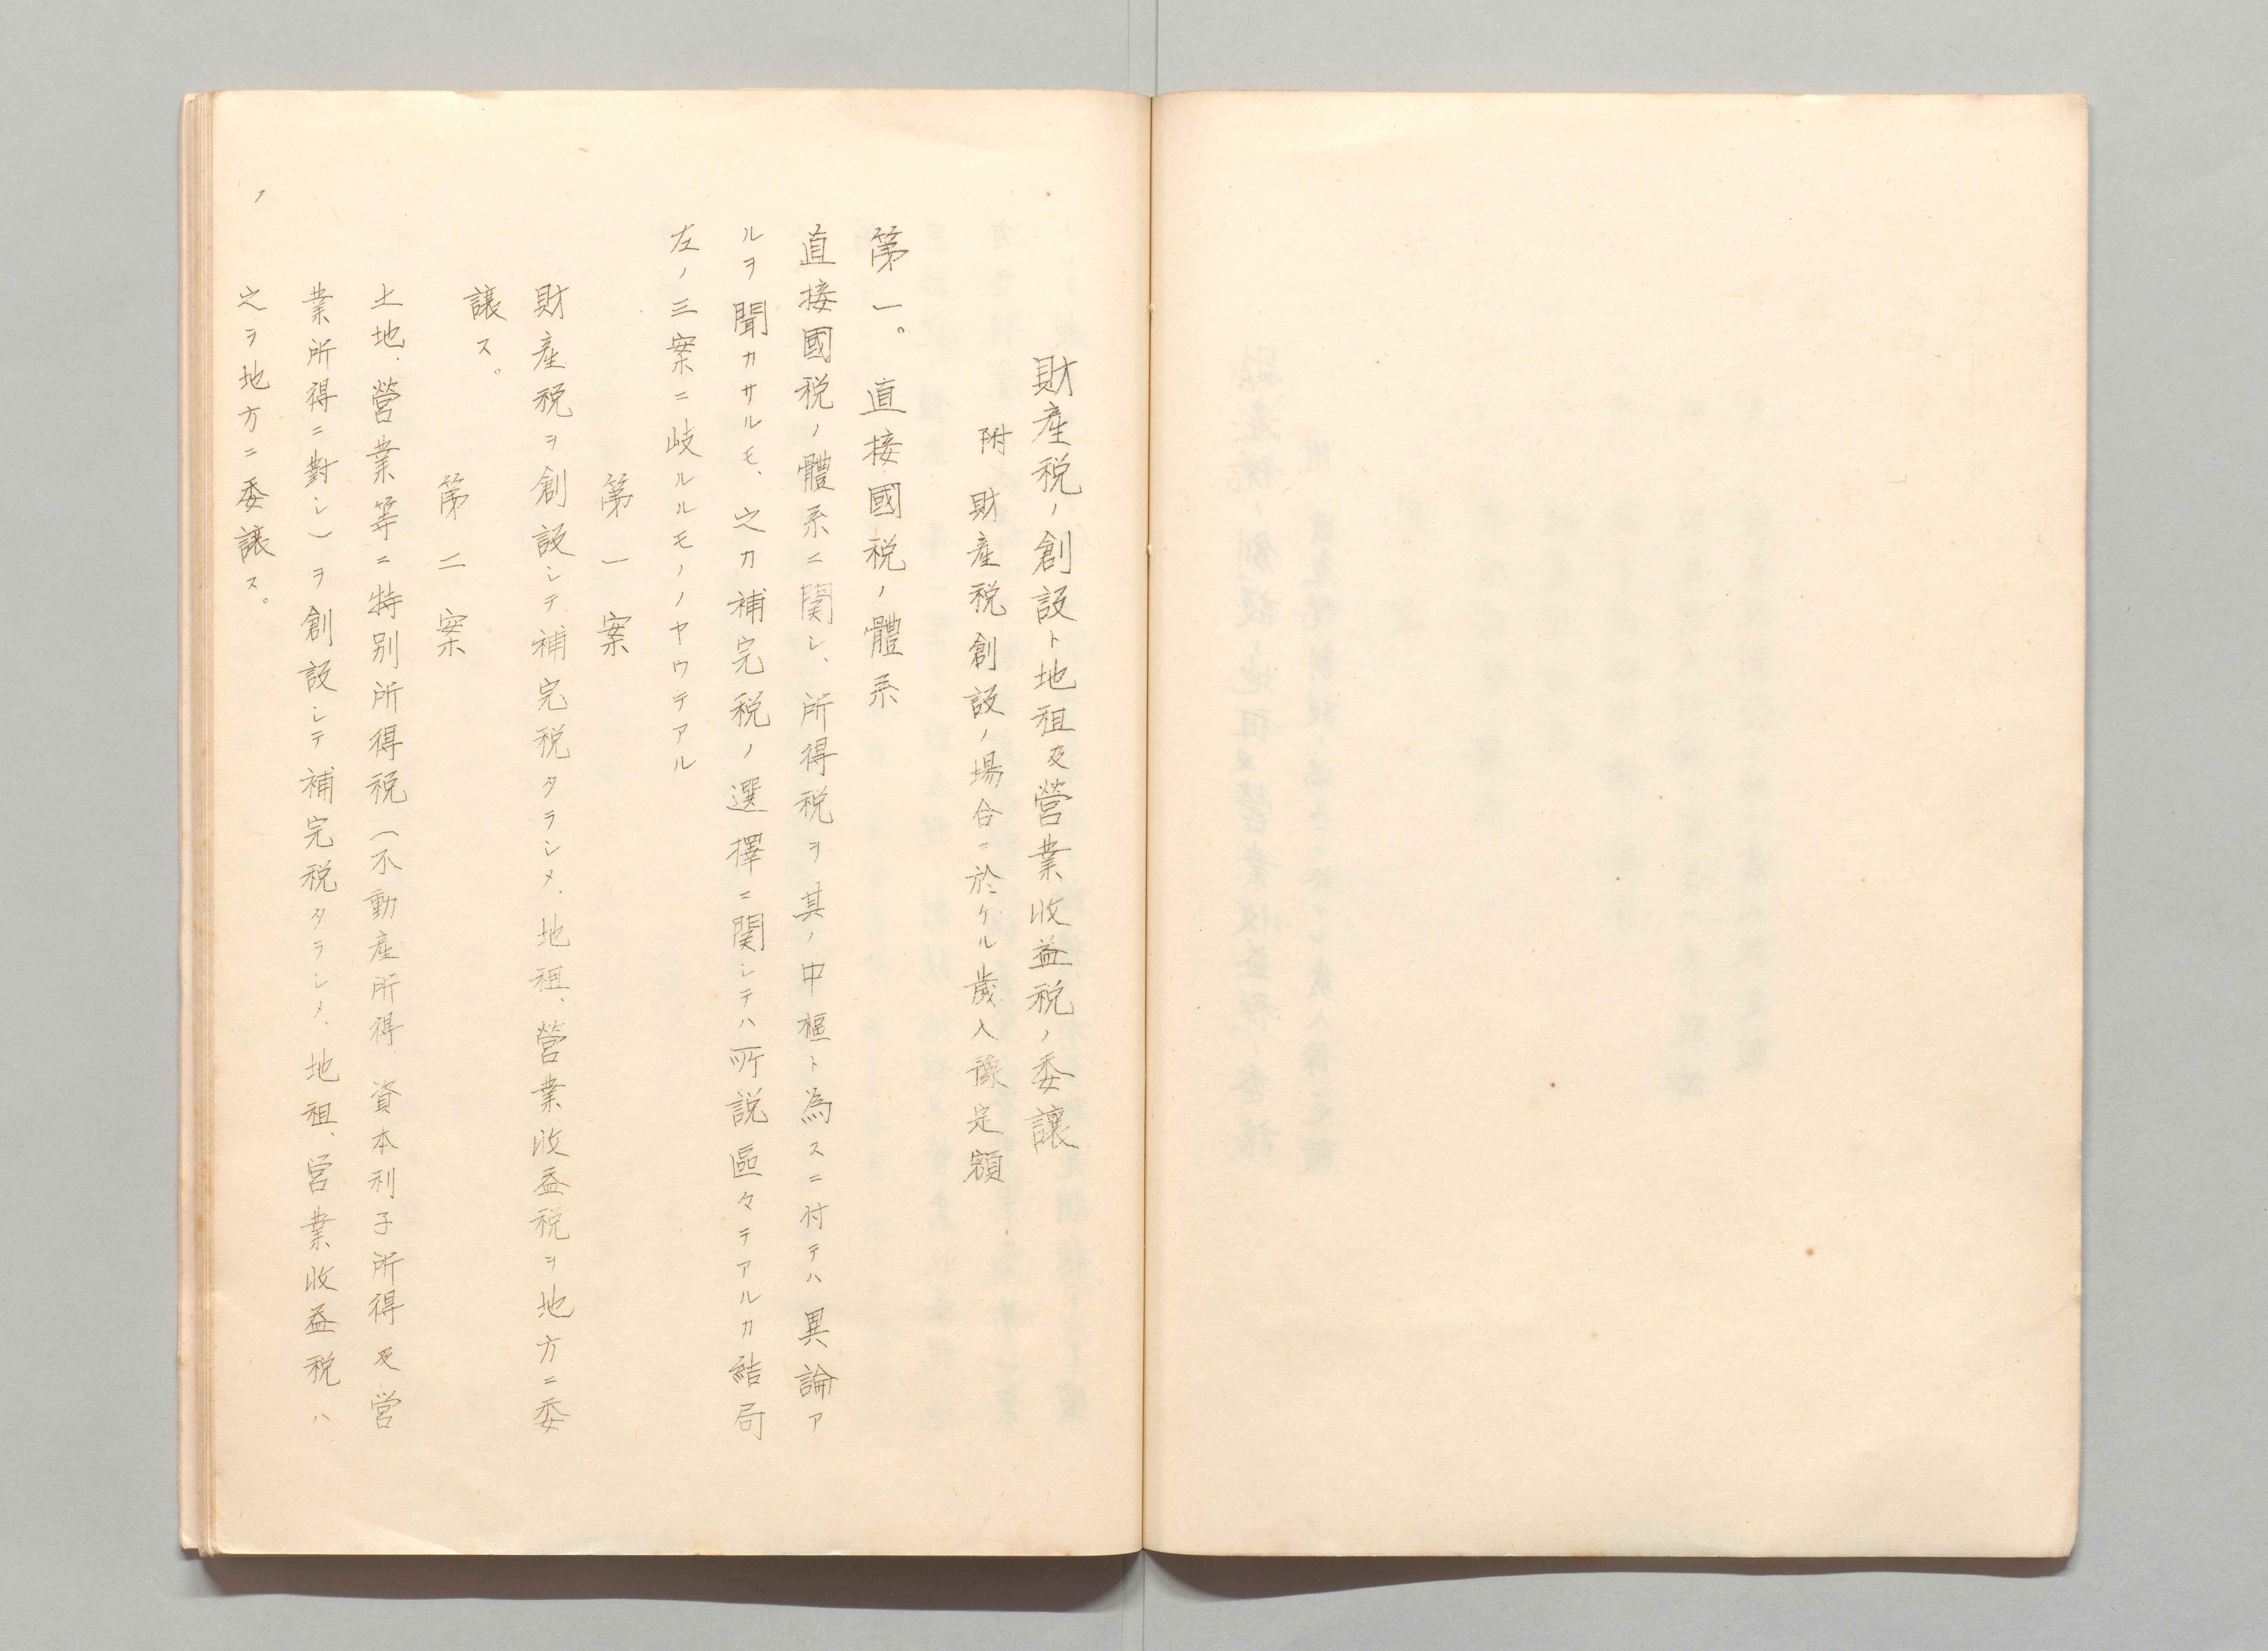 財産税ノ創設ト地租及營業收益税ノ委讓
附 財産税創設ノ場合ニ於ケル歳入豫定額
第一。 直接國税ノ體系
直接國税ノ體系ニ関シ、所得税ヲ其ノ中樞ト為スニ付テハ異論ア
ルヲ聞カサルモ、之カ補完税ノ選擇ニ関シテハ所説區々テアルカ結局
左ノ三案ニ岐ルルモノノヤウテアル
第一案
財産税ヲ創設シテ補完税タラシメ、地租、營業收益税ヲ地方ニ委
讓ス。
第二案
土地、營業等ニ特別所得税(不動産所得、資本利子所得及営
業所得ニ對シ)ヲ創設シテ補完税タラシメ、地租、営業收益税ハ
之ヲ地方ニ委讓ス。
1